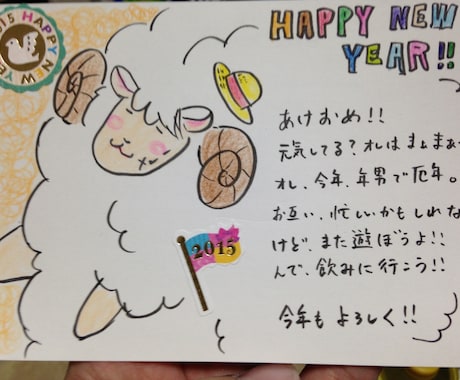 2015 HAPPY NEW YE
HAPPY NEW
YEAR!!
あけおめ!!
元気してる?オレはまぁまぁ
オレ、今年、年男で厄年。
お互い、忙しいかもしれな
けど、また遊ぼうよ!!
んで、飲みに行こう!!
今年もよろしく!!
2015